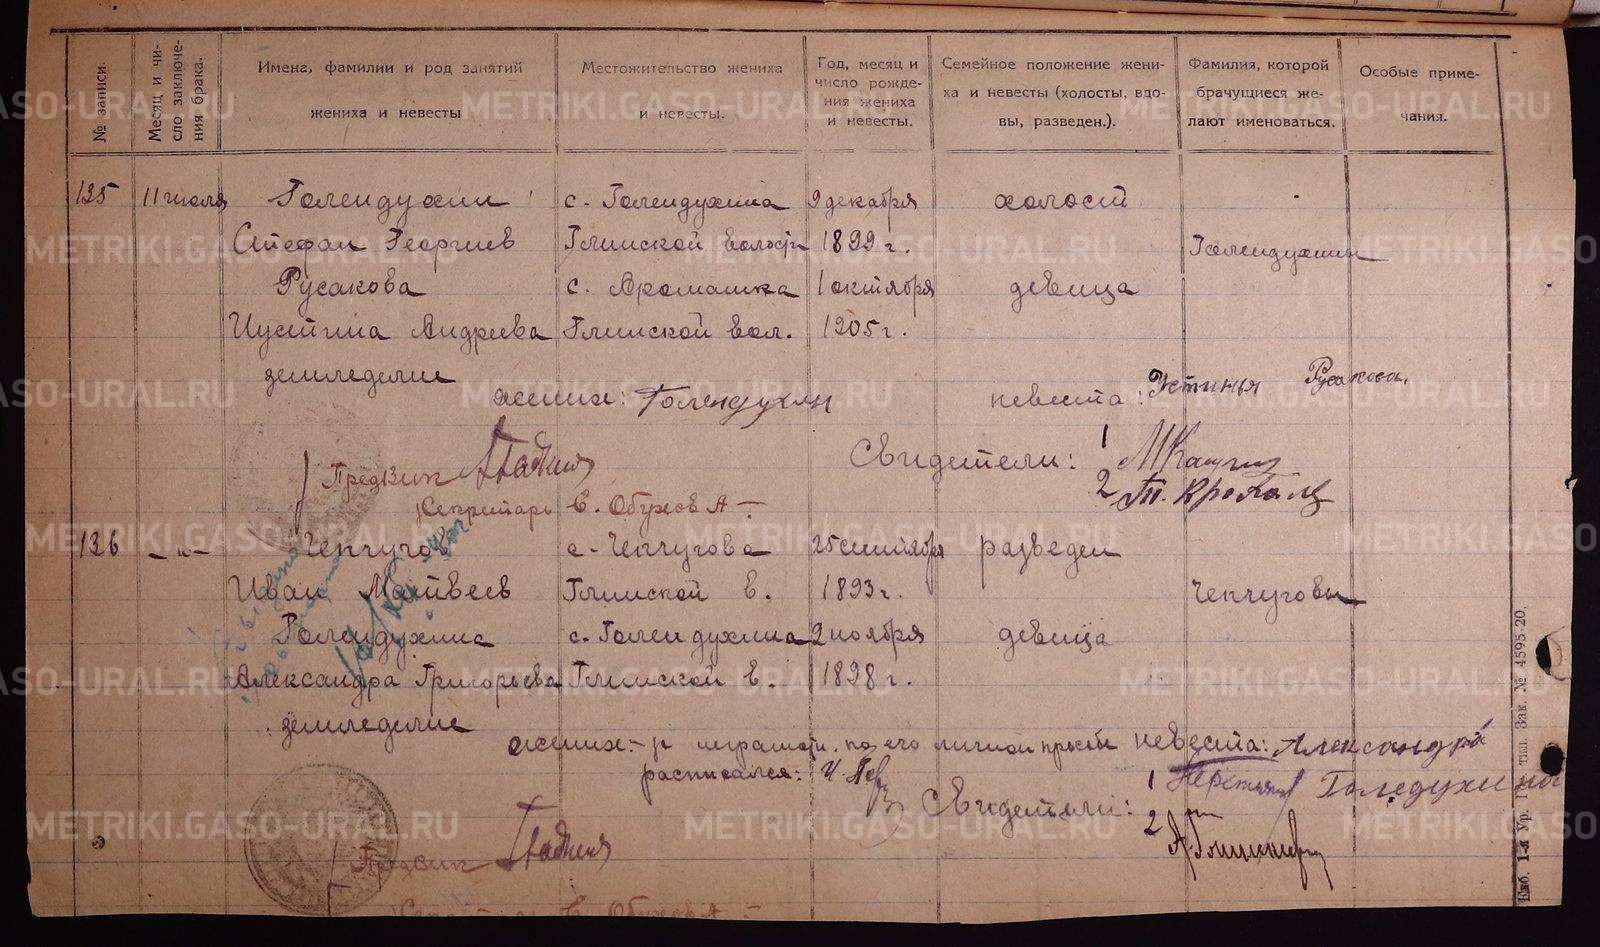 № записи.
Месяц и чи-
сло заключе-
ния брака.
Имена, фамилии и род занятий
жениха и невесты
Местожительство жениха
и невесты.
Год, месяц и
число рожде-
ния жениха
и невесты.
Семейное положение жени-
ха и невесты (холосты, вдо-
вы, разведен.).
Фамилия, которой
брачущиеся же-
лают именоваться.
Особые приме-
чания.
135 11 июля Голендухин с. Голендухина 9 декабря холост
Стефан Георгиев Глинской волости 1899 г. Голендухины
Русакова с. Арамашка 1 октября девица
Иустина Андреева Глинской вол. 1905 г.
земледелие
жених: Голендухин невеста: Устинья Русакова.
Свидетели: 1
Предвик 2
Секретарь В. Обухов А
136 -"- Чепчугов с. Чепчугова 25 сентября разведен
Иван Матвеев Глинской в. 1893 г. Чепчуговы
Голендухина с. Голендухина 2 ноября девица
Александра Григорьева Глинской в. 1898 г.
земледелие
жених:- неграмотн. по его личной просьбе невеста: Александра
расписался: Голедухина
Свидетели: 1
2
Предвик
В. Обухов А
Екб. 1-я Ур. Гос. тип. Зак. № 4595-20.
METRIKI.GASO-URAL.RU